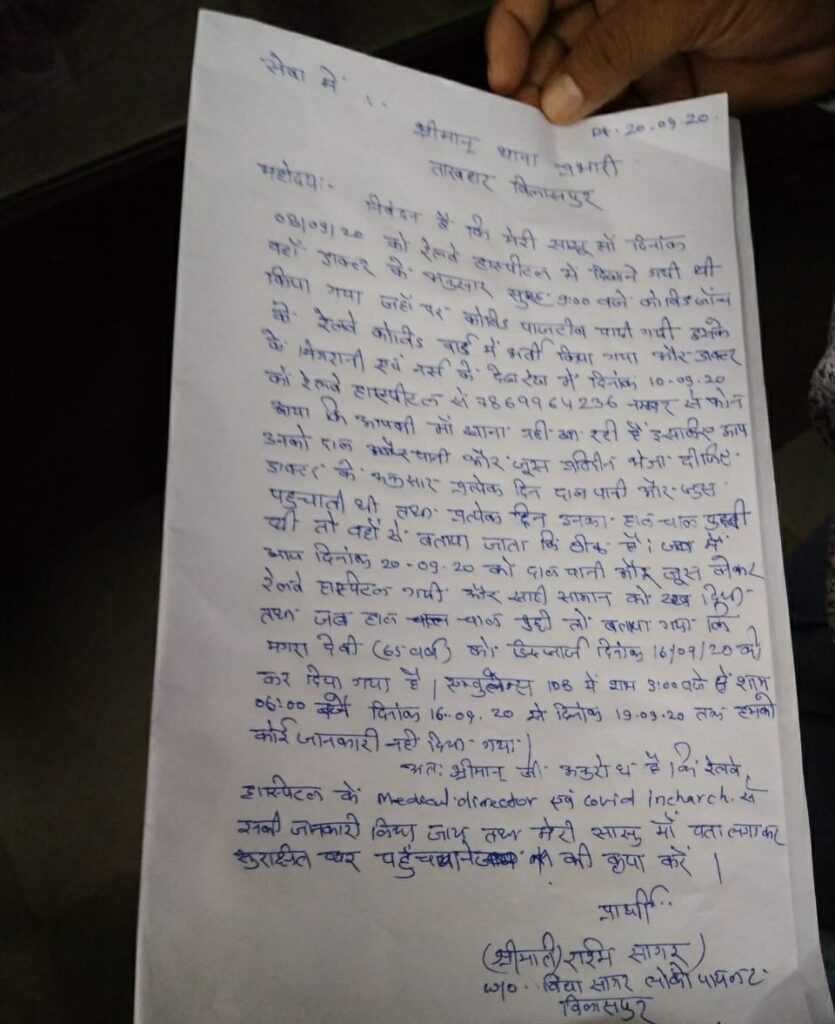 सेवा में,
Dt. 20.09.20.
श्रीमान् थाना प्रभारी
तारबहार बिलासपुर
महोदय:-
निवेदन है कि मेरी सासू माँ दिनांक
08/09/20 को रेलवे हास्पीटल में दिखाने गयी थी
वहाँ डाक्टर के अनुसार सुबह 9:00 बजे कोविड जाँच
किया गया जहाँ पर कोविड पाजटीव पायी गयी इनको
रेलवे कोविड वार्ड में भर्ती किया गया और डाक्टर
के निगरानी एवं नर्स के देखरेख में दिनांक 10-09-20
को रेलवे हास्पीटल से 7869964236 नम्बर से फोन
आया कि आपकी माँ खाना नही खा रही है इसलिए आप
उनको दाल पानी और जूस प्रतिदिन भेजा दीजिए
डाक्टर के अनुसार प्रत्येक दिन दाल पानी और जूस
पहुचाती थी तथा प्रत्येक दिन उनका हाल चाल पुछती
थी तो वहाँ से बताया जाता कि ठीक है। जब में
आज दिनांक 20-09-20 को दाल पानी और जूस लेकर
रेलवे हास्पीटल गयी और सारी सामान को रख दिया
तथा जब हाल चाल पुछी तो बताया गया कि
मगरा देवी (65 वर्ष) को डिस्चार्ज दिनांक 16/09/20 को
कर दिया गया है। एम्बुलेन्स 108 में शाम 3:00 बजे से शाम
06:00 बजे दिनांक 16.09.20 से दिनांक 19.09.20 तक हमको
कोई जानकारी नही दिया गया।
अतः श्रीमान् जी अनुरोध है। कि रेलवे
हास्पिटल के Medical director एवं Covid incharch. से
इनकी जानकारी लिया जाय तथा मेरी सासु माँ पता लगाकर
सुरक्षित घर पहुँचाने की कृपा करें।
प्रार्थी
(श्रीमती) रश्मि सागर
W/o. विद्या सागर लोको पायलट
बिलासपुर